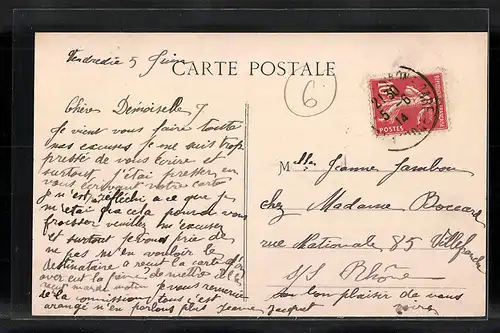 Vendredie 5 Juin
CARTE POSTALE
6
21 30
5 - 6
14
POSTES
Chère Demoiselle
Je vient vous faire toute
mes excuses Je me suis trop
pressé de vous écrire et
surtout j'étai presser en
vous écrivant votre carte
je n'est réfléchi a ce que je
m'étai que cela pouvai vous
froisser veuillez m'excuser
et surtout je vous prie de
ne pas m'en vouloir le
destinataire a recut la carte
je vous remercie
de la commission tous c'est
arrangé n'en parlons plus Jeanne Jacquet
Melle Jeanne Jambon
chez Madame Boccard
rue Nationale 85 Villefranche
s/s Rhône
au bon plaisir de vous
voire